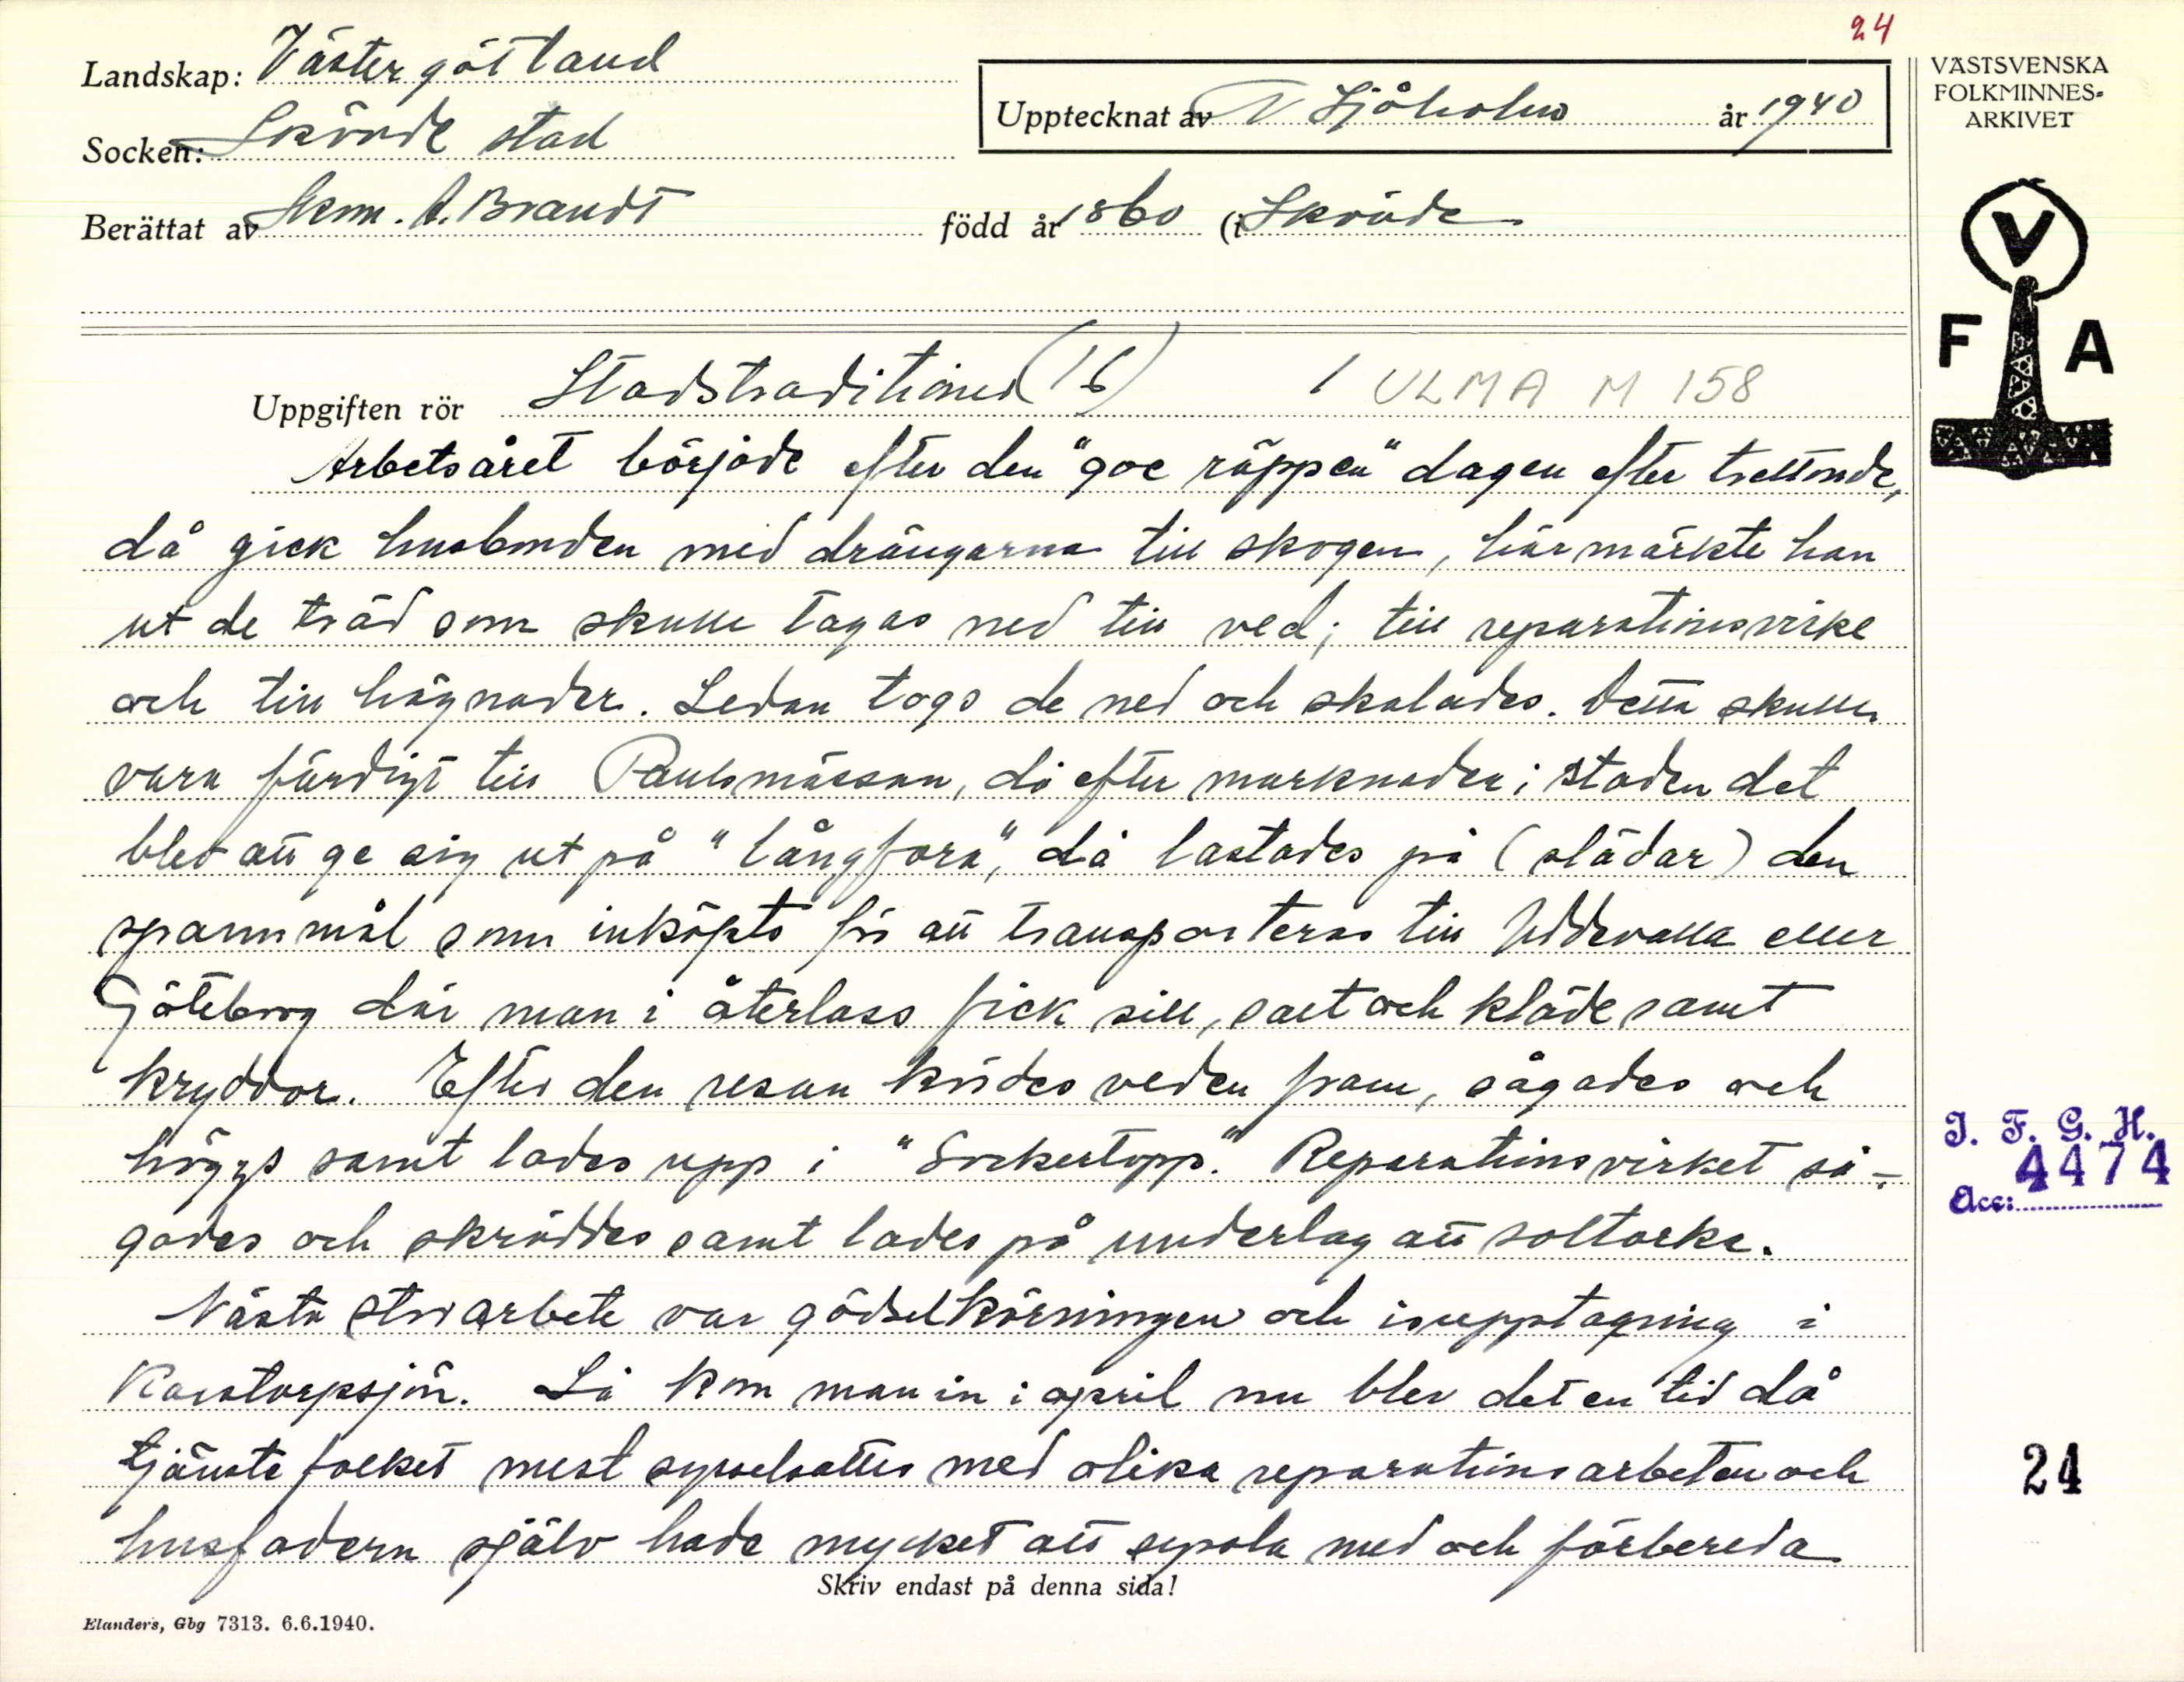 24
Landskap: Västergötland
Socken: Skövde stad
Upptecknat av N Sjöholm år 1940
Berättat av Hkm. A. Brandt född år 1860 (i Skövde
VÄSTSVENSKA
FOLKMINNES-
ARKIVET
V
F A
Uppgiften rör Stadstraditioner (16) 1 ULMA M 158
Arbetsåret började efter den "goe räppen" dagen efter trettonde,
då gick husbonden med drängarna till skogen, här märkte han
ut de träd som skulle tagas ned till ved; till reparationsvirke
och till hägnader. Sedan togs de ned och skalades. Detta skulle
vara färdigt till Paulsmässan, då efter marknaden i staden det
blev att ge sig ut på "långfora", då lastades på (slädar) den
spannmål som inköpts för att transporteras till Uddevalla eller
Göteborg där man i återlass fick sill, salt och kläde samt
kryddor. Efter den resan kördes veden fram, sågades och
höggs samt lades upp i "Sockertopp". Reparationsvirket så-
gades och skräddes samt lades på underlag att soltorka.
Nästa storarbete var gödselkörningen och isupptagning i
Karstorpsjön. Så kom man in i april nu blev det en tid då
tjänstefolket mest sysselsattes med olika reparationsarbeten och
husfadern själv hade mycket att syssla med och förbereda
Skriv endast på denna sida!
Elanders, Gbg 7313. 6.6.1940.
I. F. G. H.
4474
Acc:
24